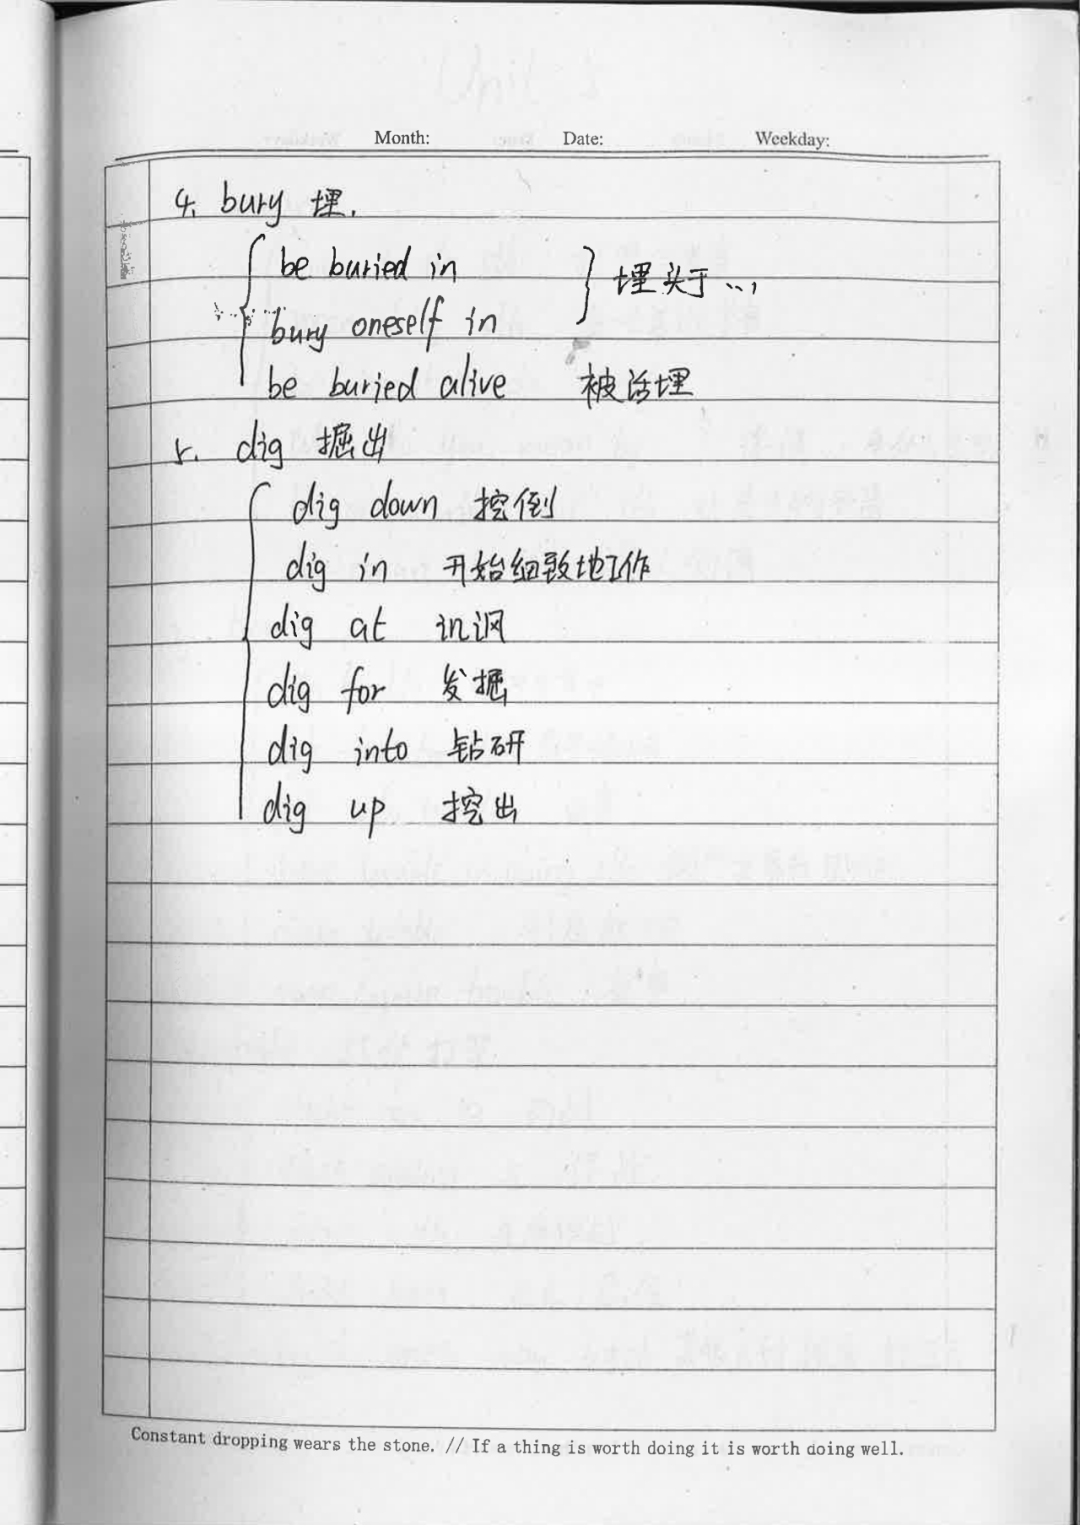 Month: Date: Weekday:
4. bury 埋.
be buried in
bury oneself in
} 埋头于...
be buried alive 被活埋
5. dig 掘出
dig down 挖倒
dig in 开始细致地工作
dig at 讥讽
dig for 发掘
dig into 钻研
dig up 挖出
Constant dropping wears the stone. // If a thing is worth doing it is worth doing well.